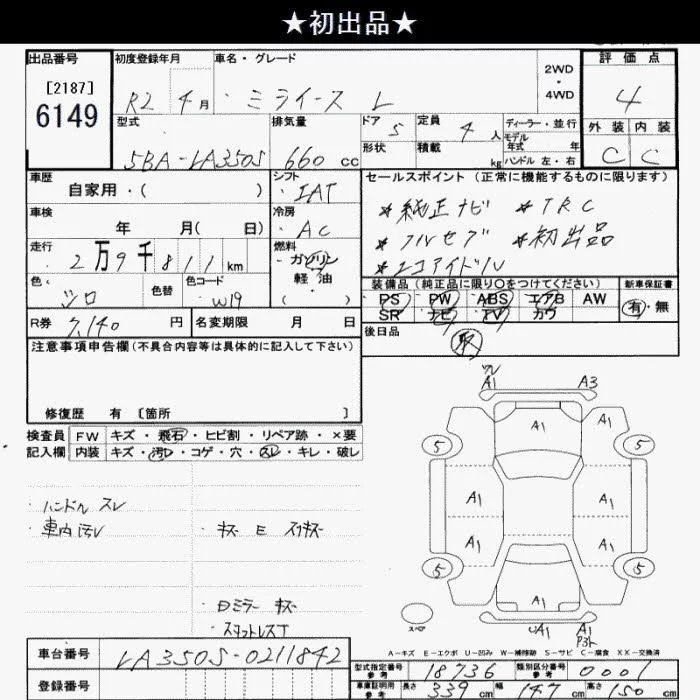 ★初出品★
出品番号 初度登録年月 車名・グレード 2WD・4WD 評価点
[2187]
6149
R2 4月 ミライース L 4
型式 排気量 ドア 5 定員 4 人 ディーラー・並行 外装 内装
モデル年式 年
形状 積載 kg ハンドル 左・右
5BA-LA350S 660 cc C C
車歴 シフト セールスポイント (正常に機能するものに限ります)
自家用・( ) IAT
*純正ナビ *TRC
車検 冷房
年 月( 日) AC
*フルセグ *初出品
走行 燃料
2万9千811km ガソリン
軽油
・( )
*エコアイドル
色 色替 色コード 装備品 (純正品に限り○をつけてください) 新車保証書
シロ W19 PS PW ABS エアB AW 有・無
SR ナビ TV カワ
R券 7,140 円 名変期限 月 日 後日品
取
注意事項申告欄(不具合内容等は具体的に記入して下さい)
修復歴 有 [箇所 ]
検査員 FW キズ・飛石・ヒビ割・リペア跡・×要
記入欄 内装 キズ・汚レ・コゲ・穴・スレ・キレ・破レ
A1 A3
A1 A1
5 5
A1 A1
A1 A1
5 5
A1
A1
スペア
・ハンドル スレ
・車内汚レ ・キズ E スリキズ
・Dミラー キズ
・スタットレスT
A-キズ E-エクボ U-凹み W-補修跡 S-サビ C-腐食 XX-交換済
車台番号 LA350S-0211842
型式指定番号 参考 18736 類別区分番号 参考 0001
登録番号
車庫証明用 参考 長さ 339 cm 幅 147 cm 高さ 150 cm